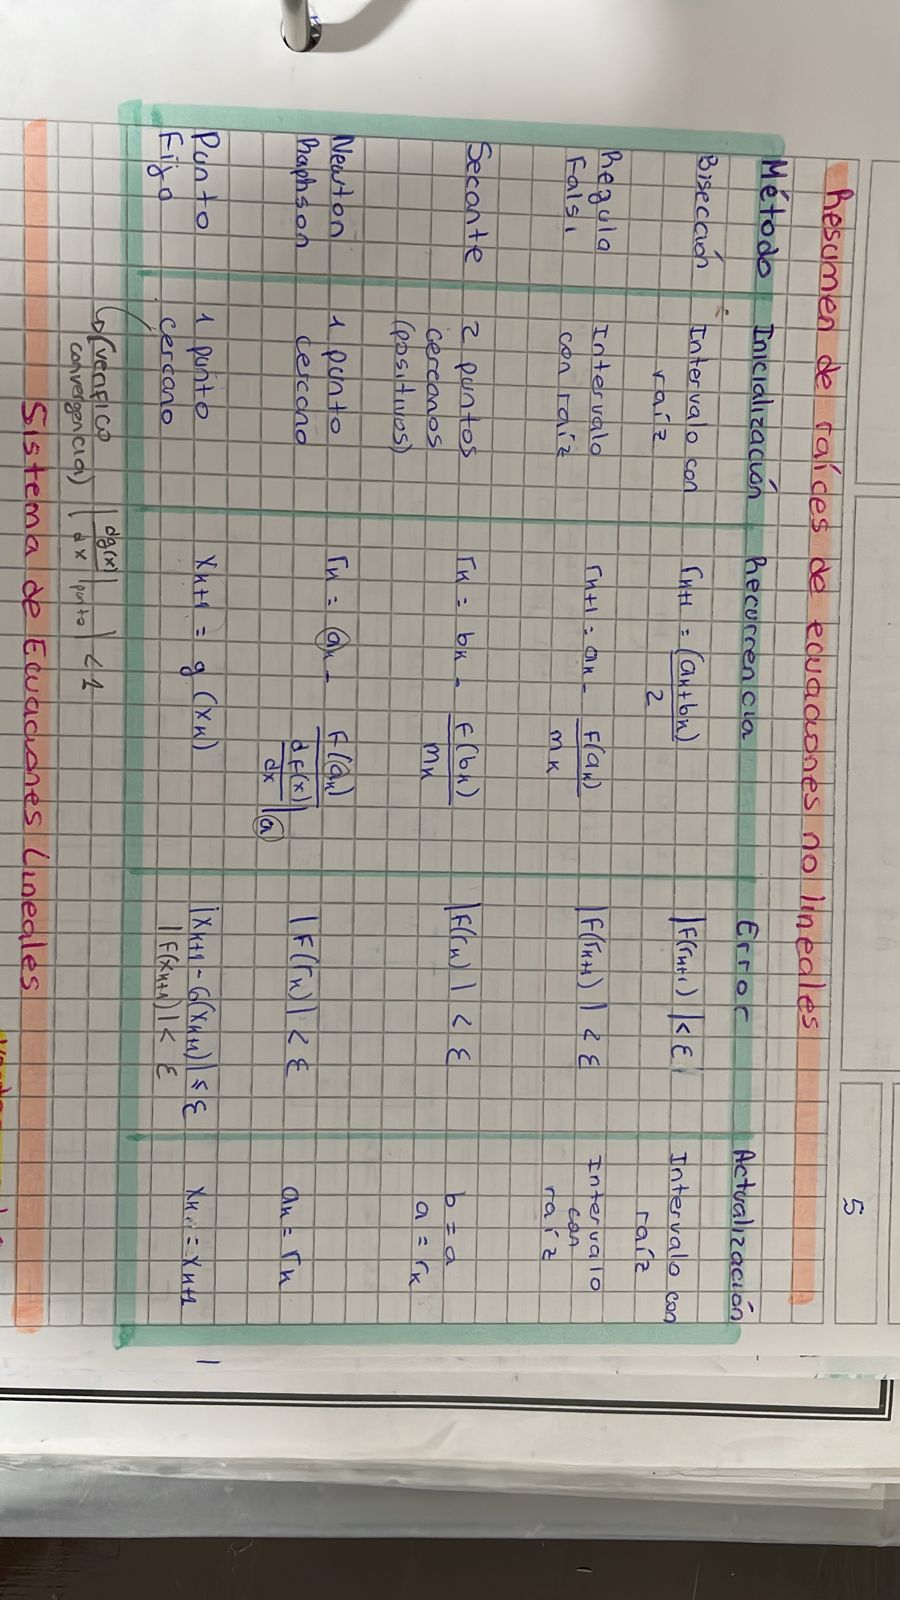 5
Resumen de raíces de ecuaciones no lineales
Método Inicialización Recurrencia Error Actualización
Bisección Intervalo con raíz r_{k+1} = (a_k+b_k)/2 |F(r_{k+1})| < ε Intervalo con raíz
Regula Falsi Intervalo con raíz r_{k+1} = a_k - F(a_k)/m_k |F(r_{k+1})| < ε Intervalo con raíz
Secante 2 puntos cercanos (positivos) r_k = b_k - F(b_k)/m_k |F(r_k)| < ε b = a a = r_k
Newton Raphson 1 punto cercano r_k = a_k - F(a_k)/(dF(x)/dx|a) |F(r_k)| < ε a_k = r_k
Punto Fijo 1 punto cercano x_{k+1} = g(x_k) |x_{k+1} - G(x_{k+1})| ≤ ε |F(x_{k+1})| < ε x_k = x_{k+1}
(verifico convergencia) |dg(x)/dx|punto| < 1
Sistema de Ecuaciones Lineales